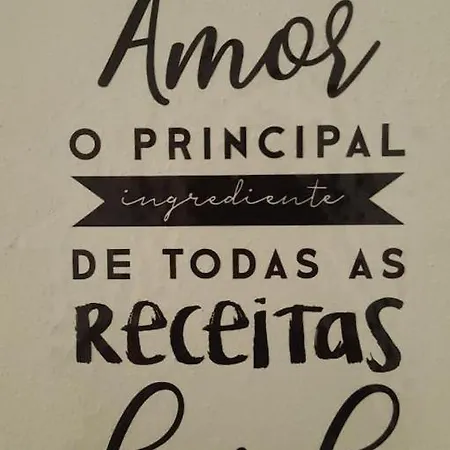 Amor
O PRINCIPAL
ingrediente
DE TODAS AS
RECEITAS